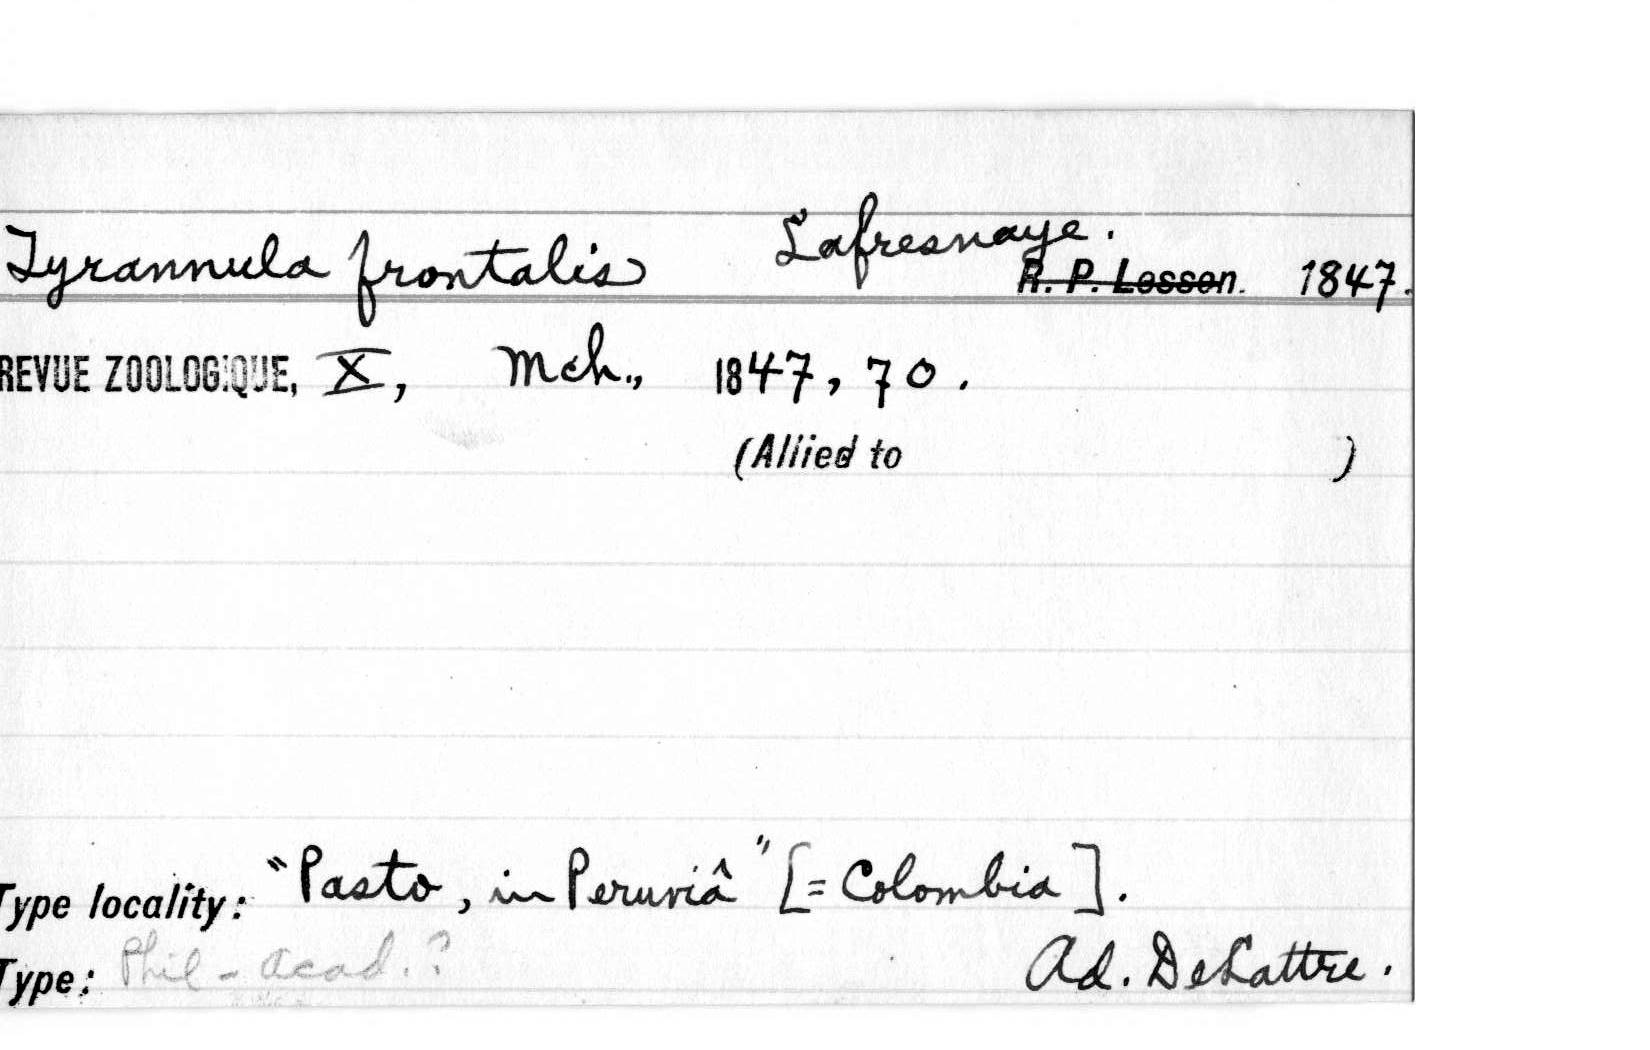 Tyrannula frontalis Lafresnaye.
R. P. Lesson. 1847.
REVUE ZOOLOGIQUE, X, Mch., 1847, 70.
(Allied to )
Type locality: "Pasto, in Peruviâ" [= Colombia].
Type: Phil - Acad.? Ad. DeLattre.